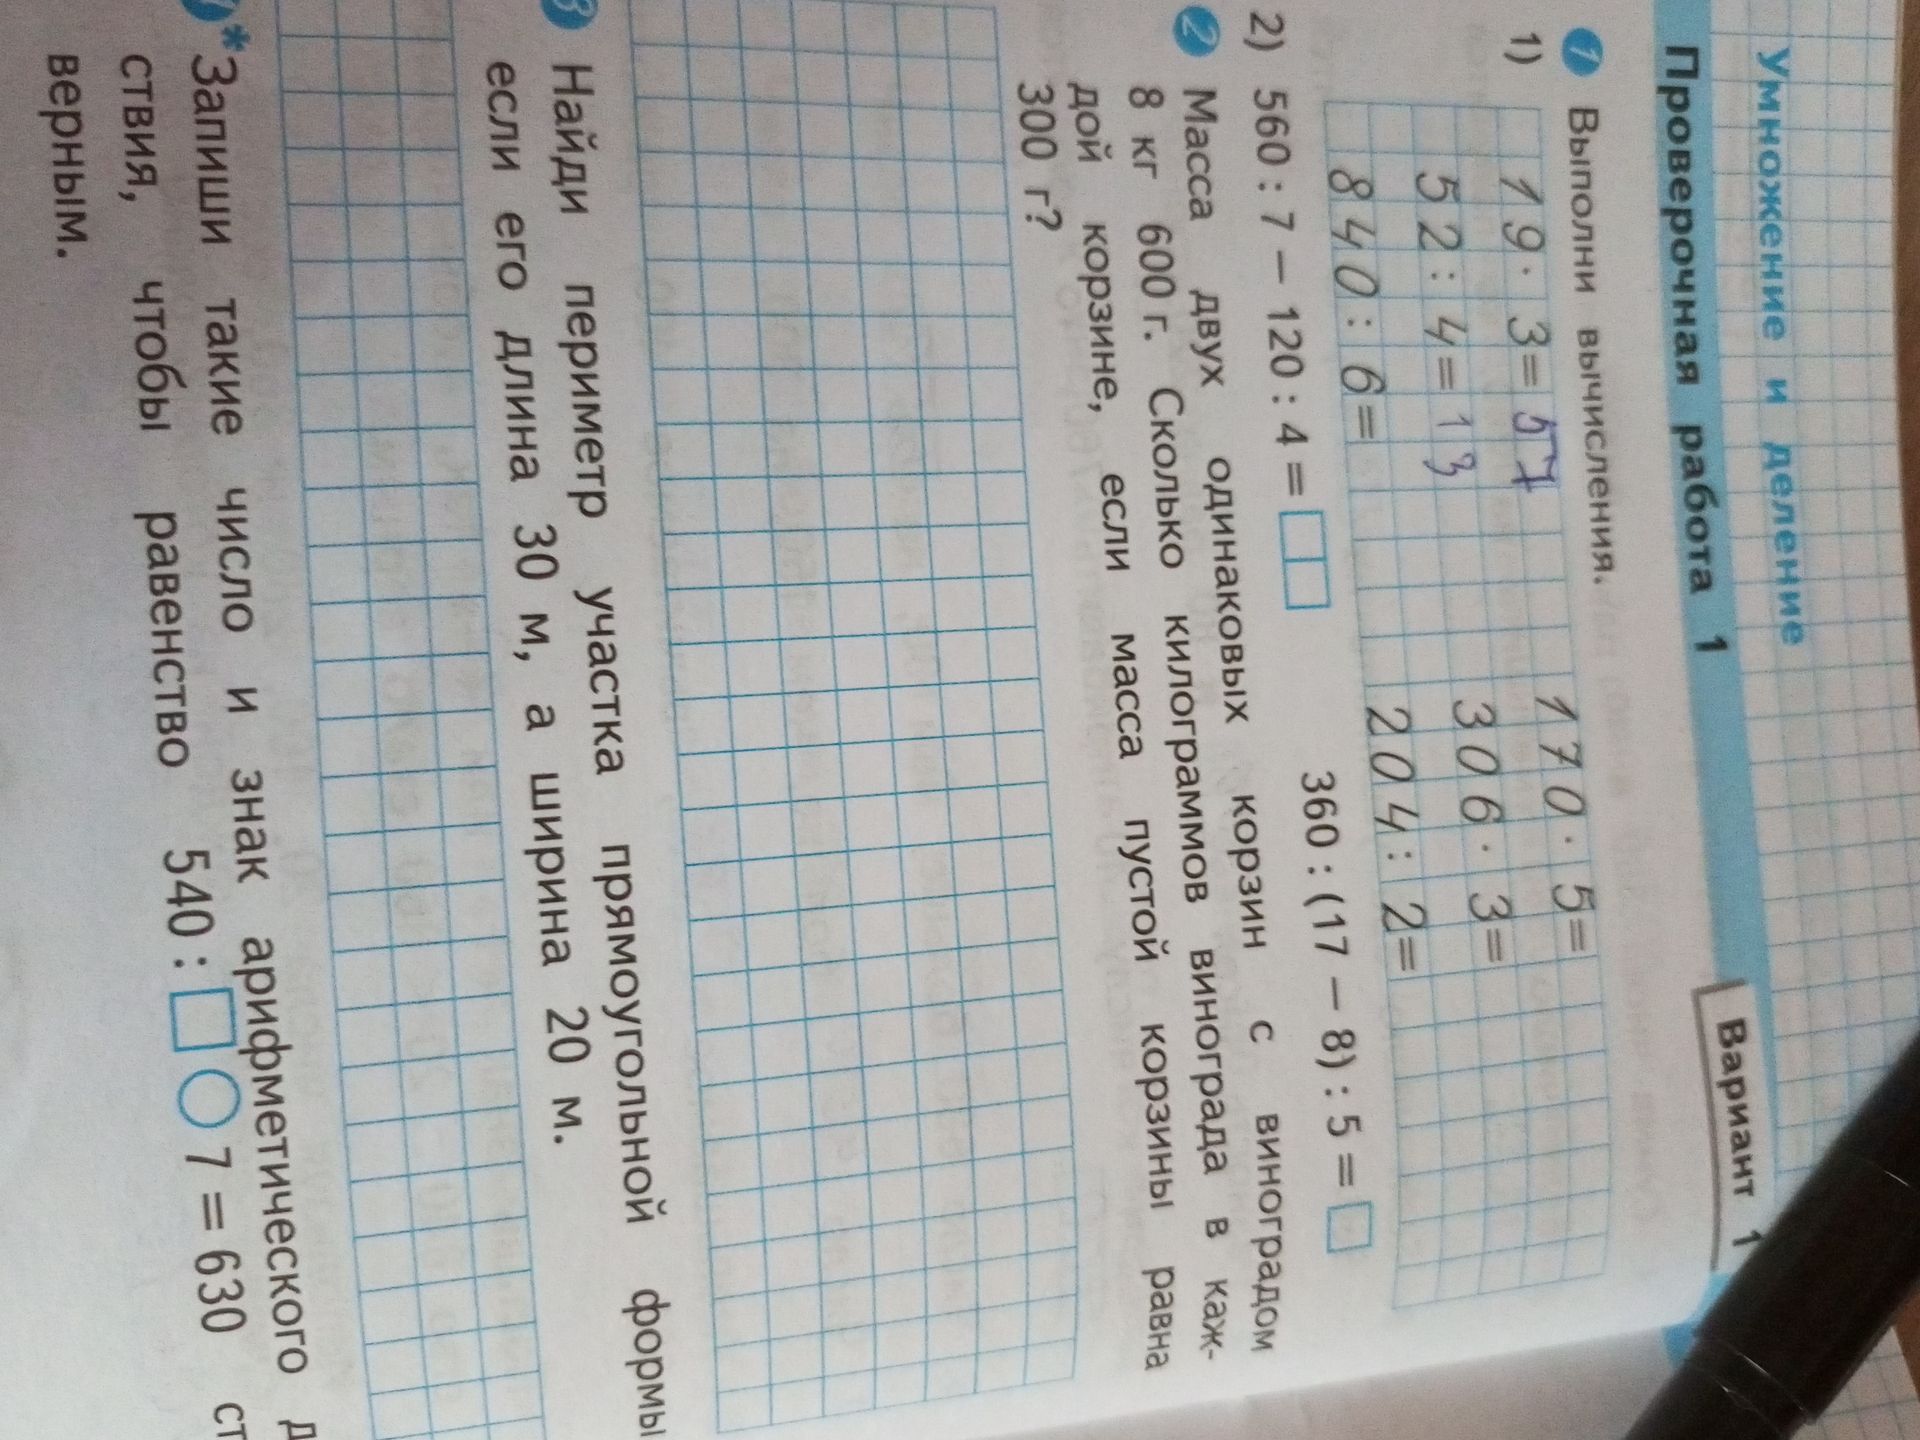 Умножение и деление
Проверочная работа 1
Вариант 1
1 Выполни вычисления.
1) 19 · 3 = 57 170 · 5 =
52 : 4 = 13 306 · 3 =
840 : 6 = 204 : 2 =
2) 560 : 7 − 120 : 4 = □□ 360 : (17 − 8) : 5 = □
2 Масса двух одинаковых корзин с виноградом
8 кг 600 г. Сколько килограммов винограда в каж-
дой корзине, если масса пустой корзины равна
300 г?
3 Найди периметр участка прямоугольной формы
если его длина 30 м, а ширина 20 м.
* Запиши такие число и знак арифметического д
ствия, чтобы равенство 540 : □ ○ 7 = 630 ст
верным.